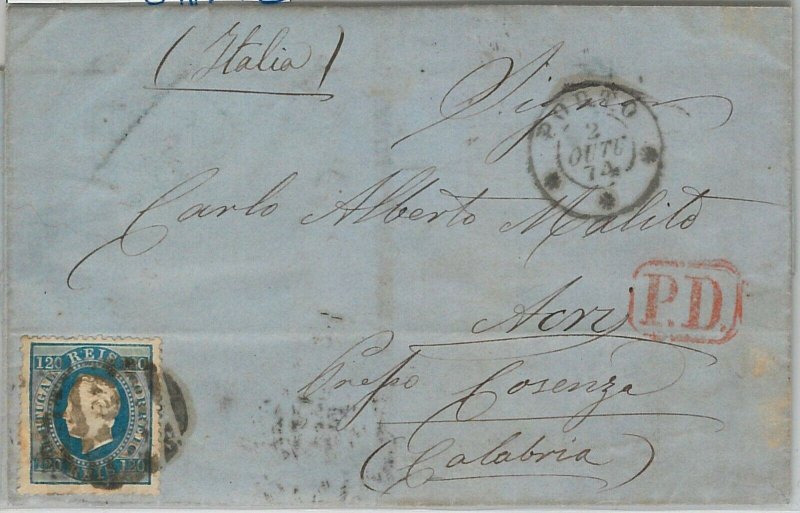 (Italia)
Sigr
PORTO
2
OUTU
74
Carlo Alberto Malito
P.D.
Acri
Presso Cosenza
(Calabria)
120 REIS
PORTUGAL CORREIO
120 120